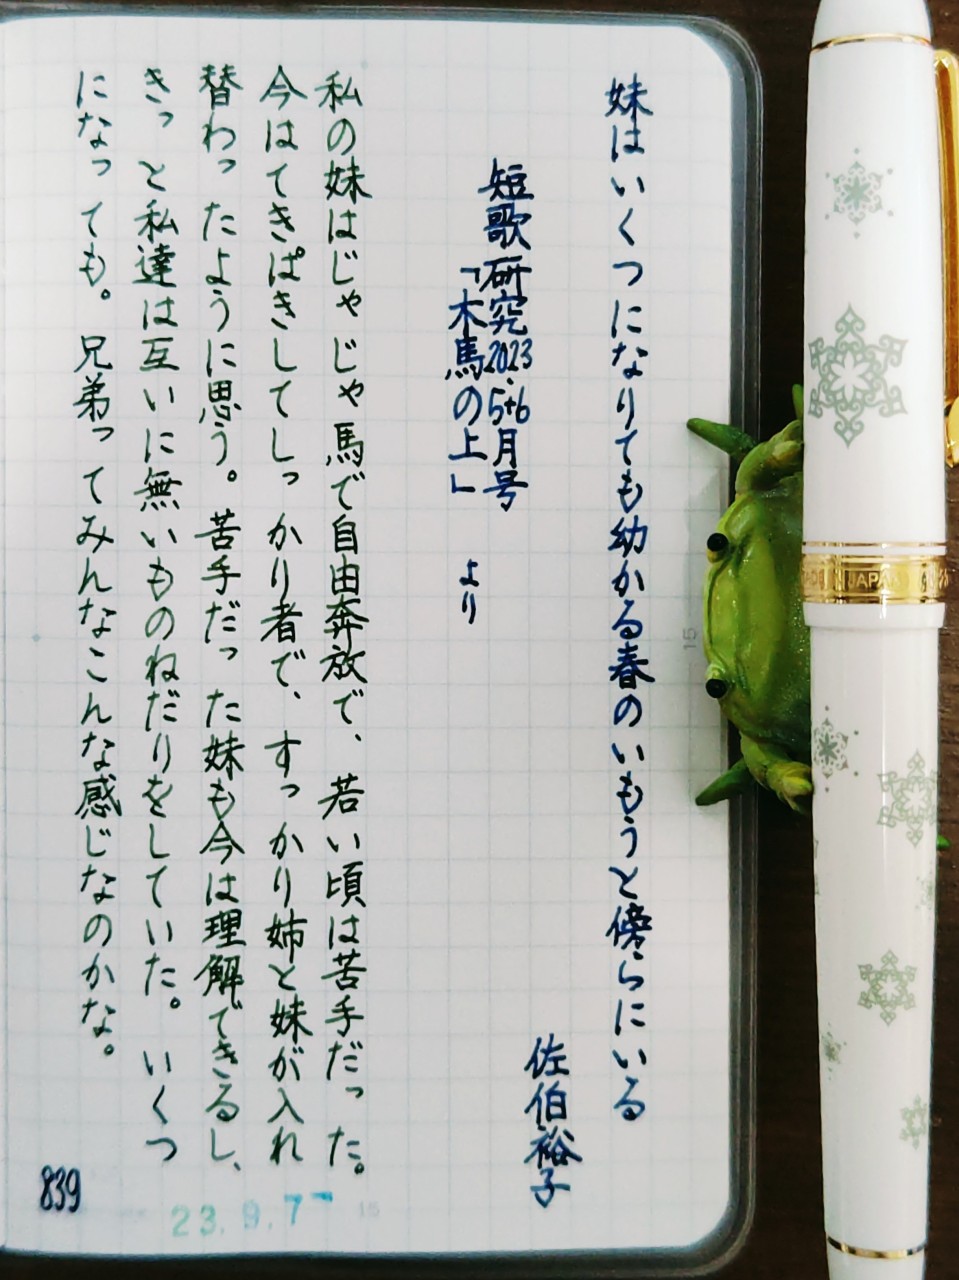 妹はいくつになりても幼かる春のいもうと傍らにいる
佐伯裕子
短歌研究2023.5+6月号
「木馬の上」 より
私の妹はじゃじゃ馬で自由奔放で、若い頃は苦手だった。
今はてきぱきしてしっかり者で、すっかり姉と妹が入れ
替わったように思う。苦手だった妹も今は理解できるし、
きっと私達は互いに無いものねだりをしていた。いくつ
になっても。兄弟ってみんなこんな感じなのかな。
839
23.9.7
15
15
JAPAN